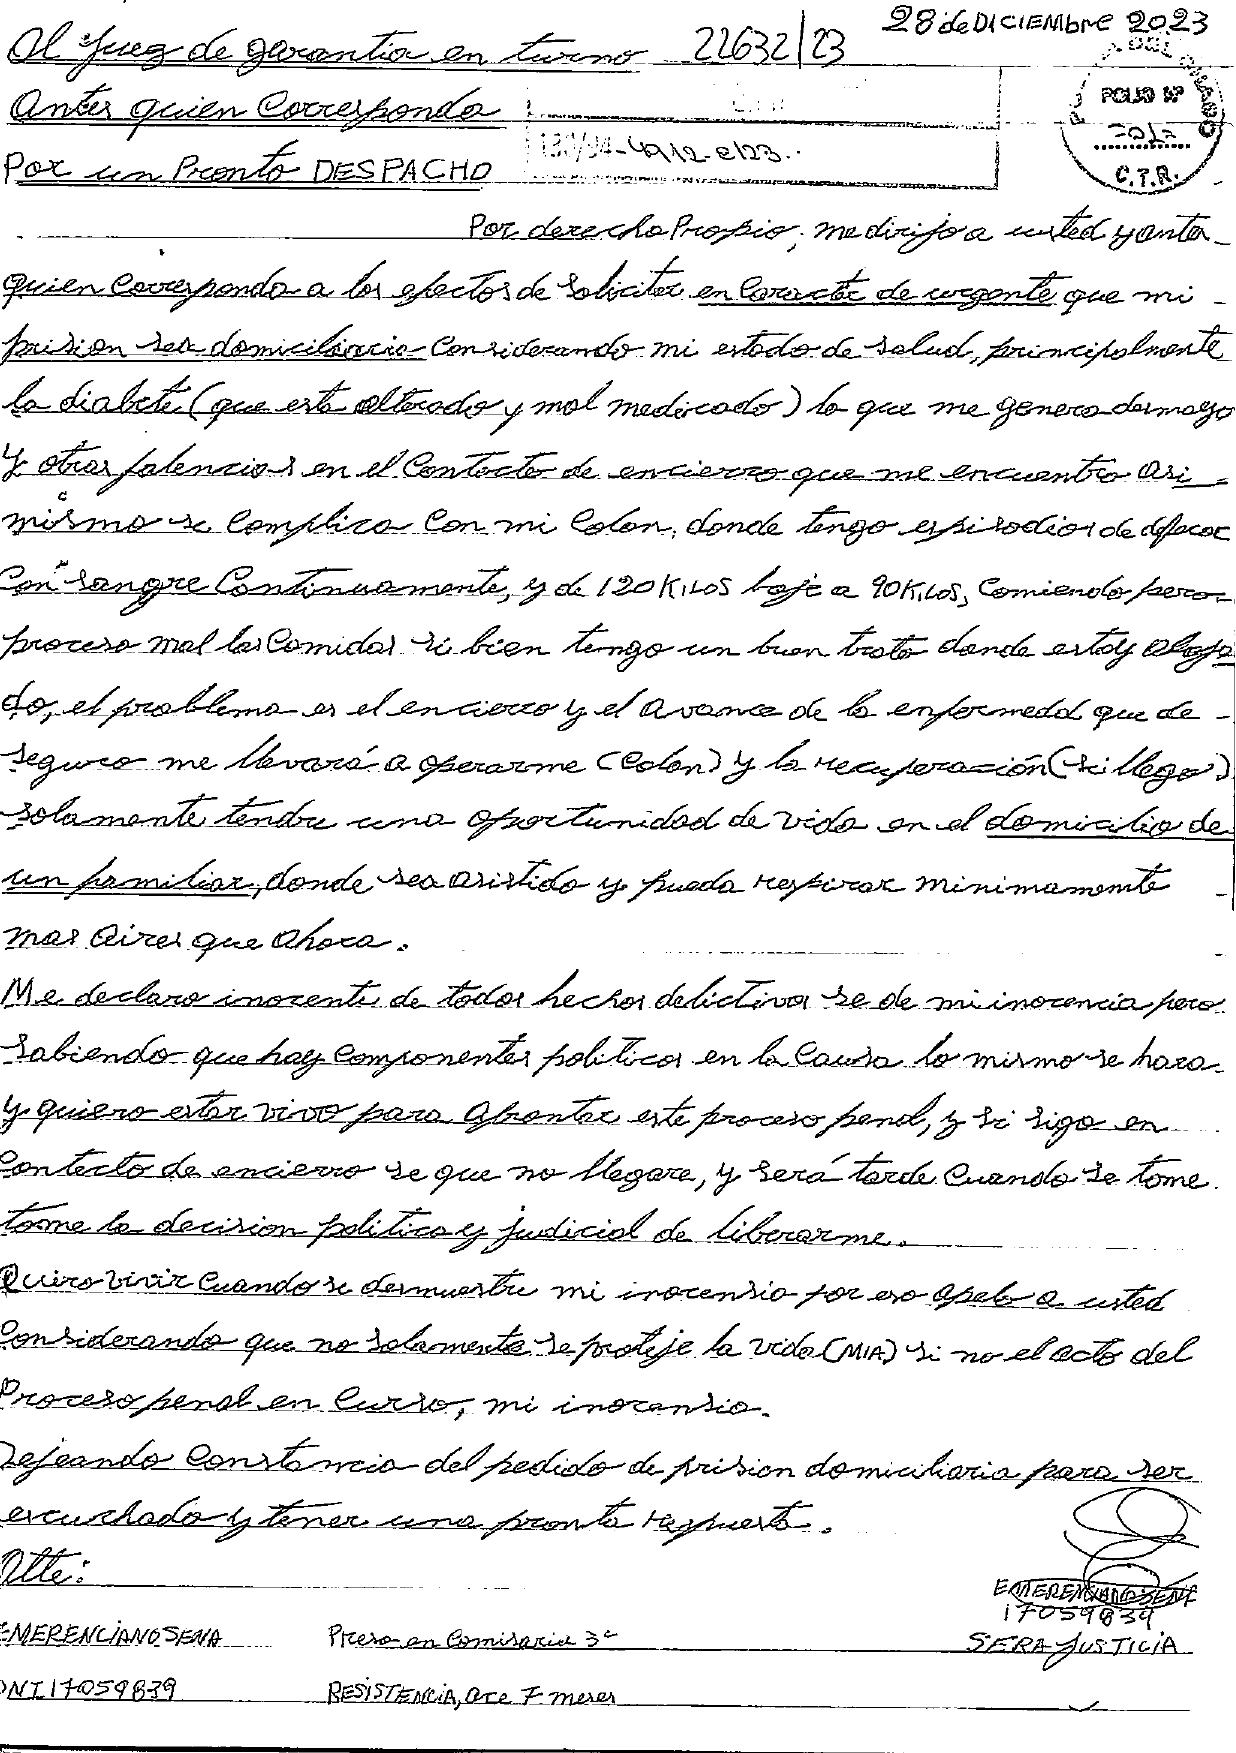 28 de DICIEMbre 2023
Al Juez de garantia en turno 22632/23
Antes quien Corresponda
FOLIO Nº
C.T.R.
Por un Pronto DESPACHO
Por derecho Propio, me dirijo a usted y ante
quien Corresponda a los efectos de Solicitar en Caracter de urgente que mi
prision sea domiciliaria Considerando mi estado de salud, principalmente
la diabete (que esta alterado y mal medicado) lo que me genera desmayo
Y otras falencias en el Contecto de encierro que me encuentro Asi
mismo se Complica Con mi Colon, donde tengo espisodios de defecar
Con sangre Continuamente, y de 120 KiLOS baje a 90 KiLOS, Comiendo pero
proceso mal las Comidas si bien tengo un buen trato donde estoy aloja
do, el problema es el encierro y el avance de la enfermedad que de
seguro me llevará a operarme (Colon) y la recuperación (si llego)
solamente tendre una oportunidad de vida en el domicilio de
un familiar, donde sea asistido y pueda respirar minimamente
mas aires que ahora.
Me declaro inocente de todos hechos delictivos se de mi inocencia pero
Sabiendo que hay Componentes politicos en la Causa lo mismo se hara
y quiero estar vivo para afrontar este proceso penal, y si sigo en
Contecto de encierro se que no llegare, y será tarde Cuando se tome
tome la decision politica y judicial de liberarme.
Quiro vivir Cuando se demuestre mi inocensia por eso apelo a usted
Considerando que no solamente se proteje la vida (MIA) si no el acto del
Proceso penal en Curso, mi inocensia.
Dejeando Constancia del pedido de prision domiciliaria para ser
escuchado y tener una pronta respuesta.
Atte:
EMERENCIANO SENA
17059839
EMERENCIANO SENA Preso en Comisaria 3ª SERA JUSTICIA
DNI 17059839 RESISTENCIA, ace 7 meses